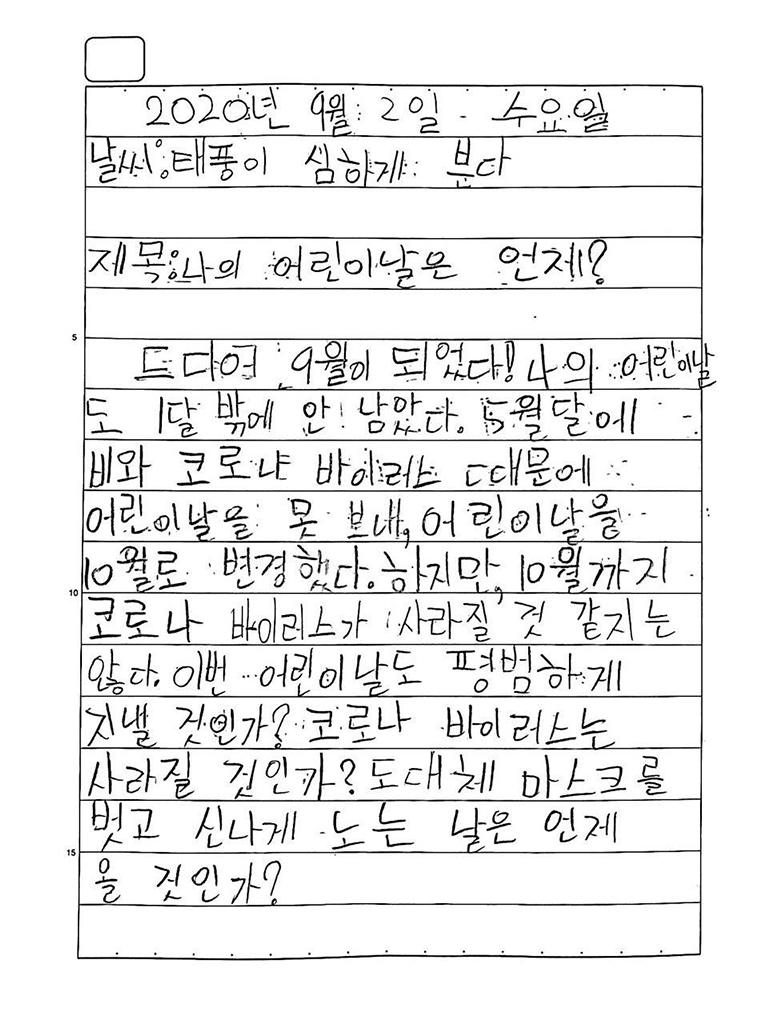 2020년 9월 2일 수요일
날씨:태풍이 심하게 분다
제목:나의 어린이날은 언제?
5
드디어 9월이 되었다! 나의 어린이날
도 1달 밖에 안 남았다. 5월달에
비와 코로나 바이러스 때문에
어린이날을 못 보내, 어린이날을
10월로 변경했다. 하지만, 10월까지
10
코로나 바이러스가 사라질 것 같지는
않다. 이번 어린이날도 평범하게
지낼 것인가? 코로나 바이러스는
사라질 것인가? 도대체 마스크를
벗고 신나게 노는 날은 언제
15
올 것인가?